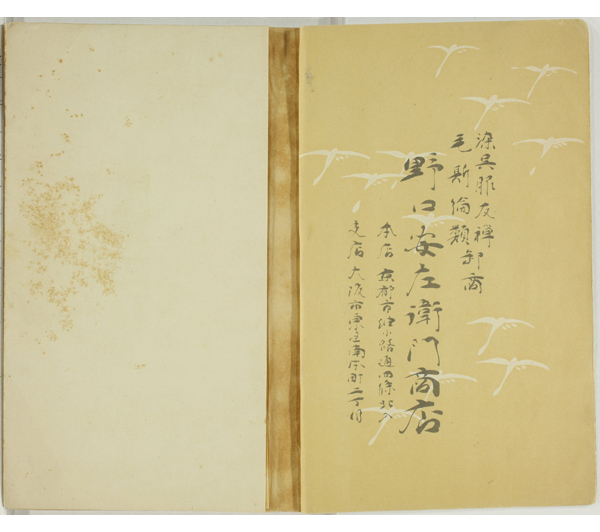 染呉服友禅卸商
毛斯倫類
野口安左衛門商店
本店 京都市油小路通四條北入
支店 大阪市東區南久町二丁目